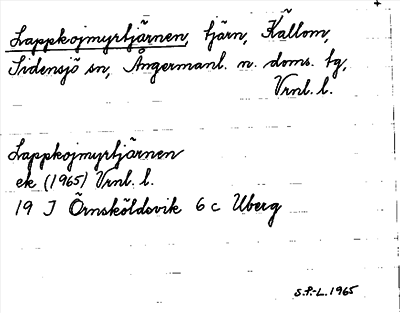 Lappkojmyrtjärnen, tjärn, Källom,
Sidensjö sn, Ångermanl. n. doms. tg,
Vrnl. l.
Lappkojmyrtjärnen
ek (1965) Vrnl. l.
19 J Örnsköldsvik 6 c Uberg
S.P.-L. 1965